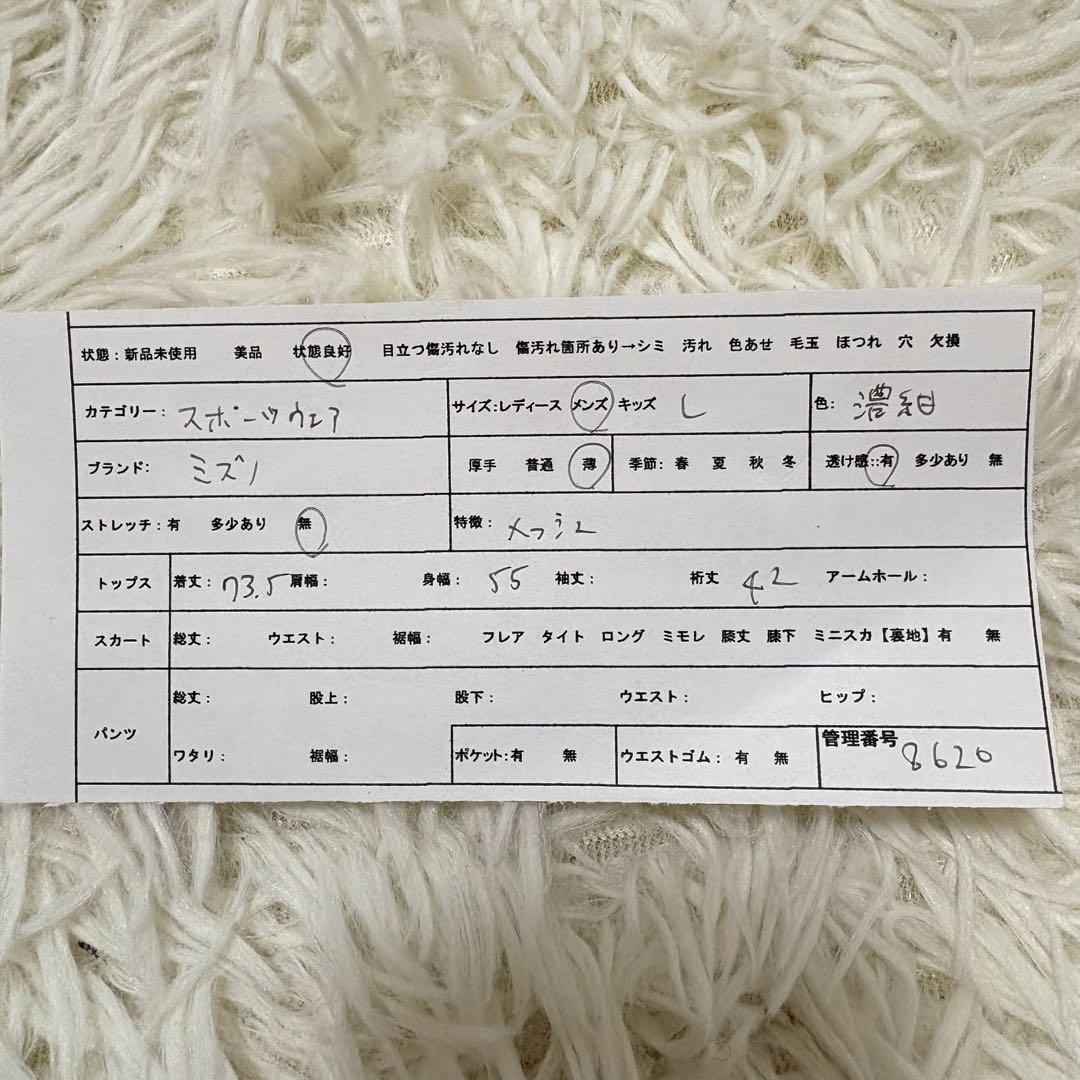 状態：新品未使用　美品　状態良好　目立つ傷汚れなし　傷汚れ箇所あり→シミ　汚れ　色あせ　毛玉　ほつれ　穴　欠損
カテゴリー：スポーツウェア　サイズ:レディース　メンズ　キッズ　L　色：濃紺
ブランド：ミズノ　厚手　普通　薄　季節：春　夏　秋　冬　透け感::有　多少あり　無
ストレッチ：有　多少あり　無　特徴：メッシュ
トップス　着丈：73.5　肩幅：　身幅：55　袖丈：　裄丈　42　アームホール：
スカート　総丈：　ウエスト：　裾幅：　フレア　タイト　ロング　ミモレ　膝丈　膝下　ミニスカ【裏地】有　無
パンツ　総丈：　股上：　股下：　ウエスト：　ヒップ：
ワタリ：　裾幅：　ポケット:有　無　ウエストゴム：有　無　管理番号　8620